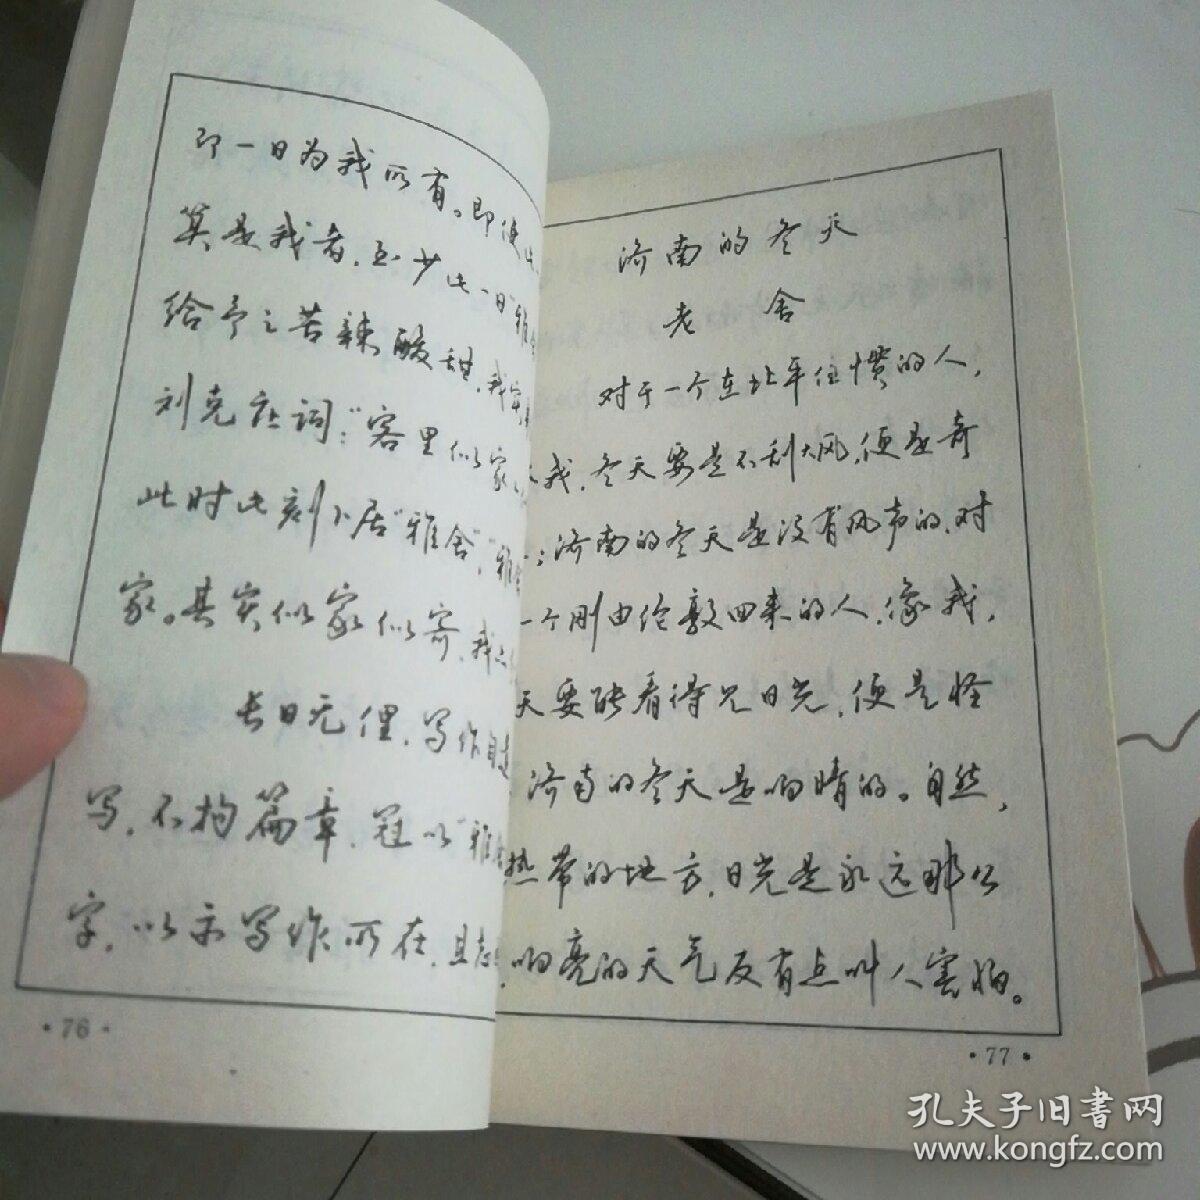 即一日为我所有。即使此
算是我者，至少此一日“雅舍
给予之苦辣酸甜，我实
刘克庄词：“客里似家
此时此刻卜居“雅舍”，“雅舍
家。其实似家似寄，我
长日无俚，写作自遣
写，不拘篇章，冠以“雅舍
字，以示写作所在，且志
·76·
济南的冬天
老舍
对于一个在北平住惯的人，
我，冬天要是不刮大风，便是奇
；济南的冬天是没有风声的。对
一个刚由伦敦回来的人，像我，
天要能看得见日光，便是怪
济南的冬天是响晴的。自然，
热带的地方，日光是永远那么
响亮的天气反有点叫人害怕。
·77·
孔夫子旧书网
www.kongfz.com